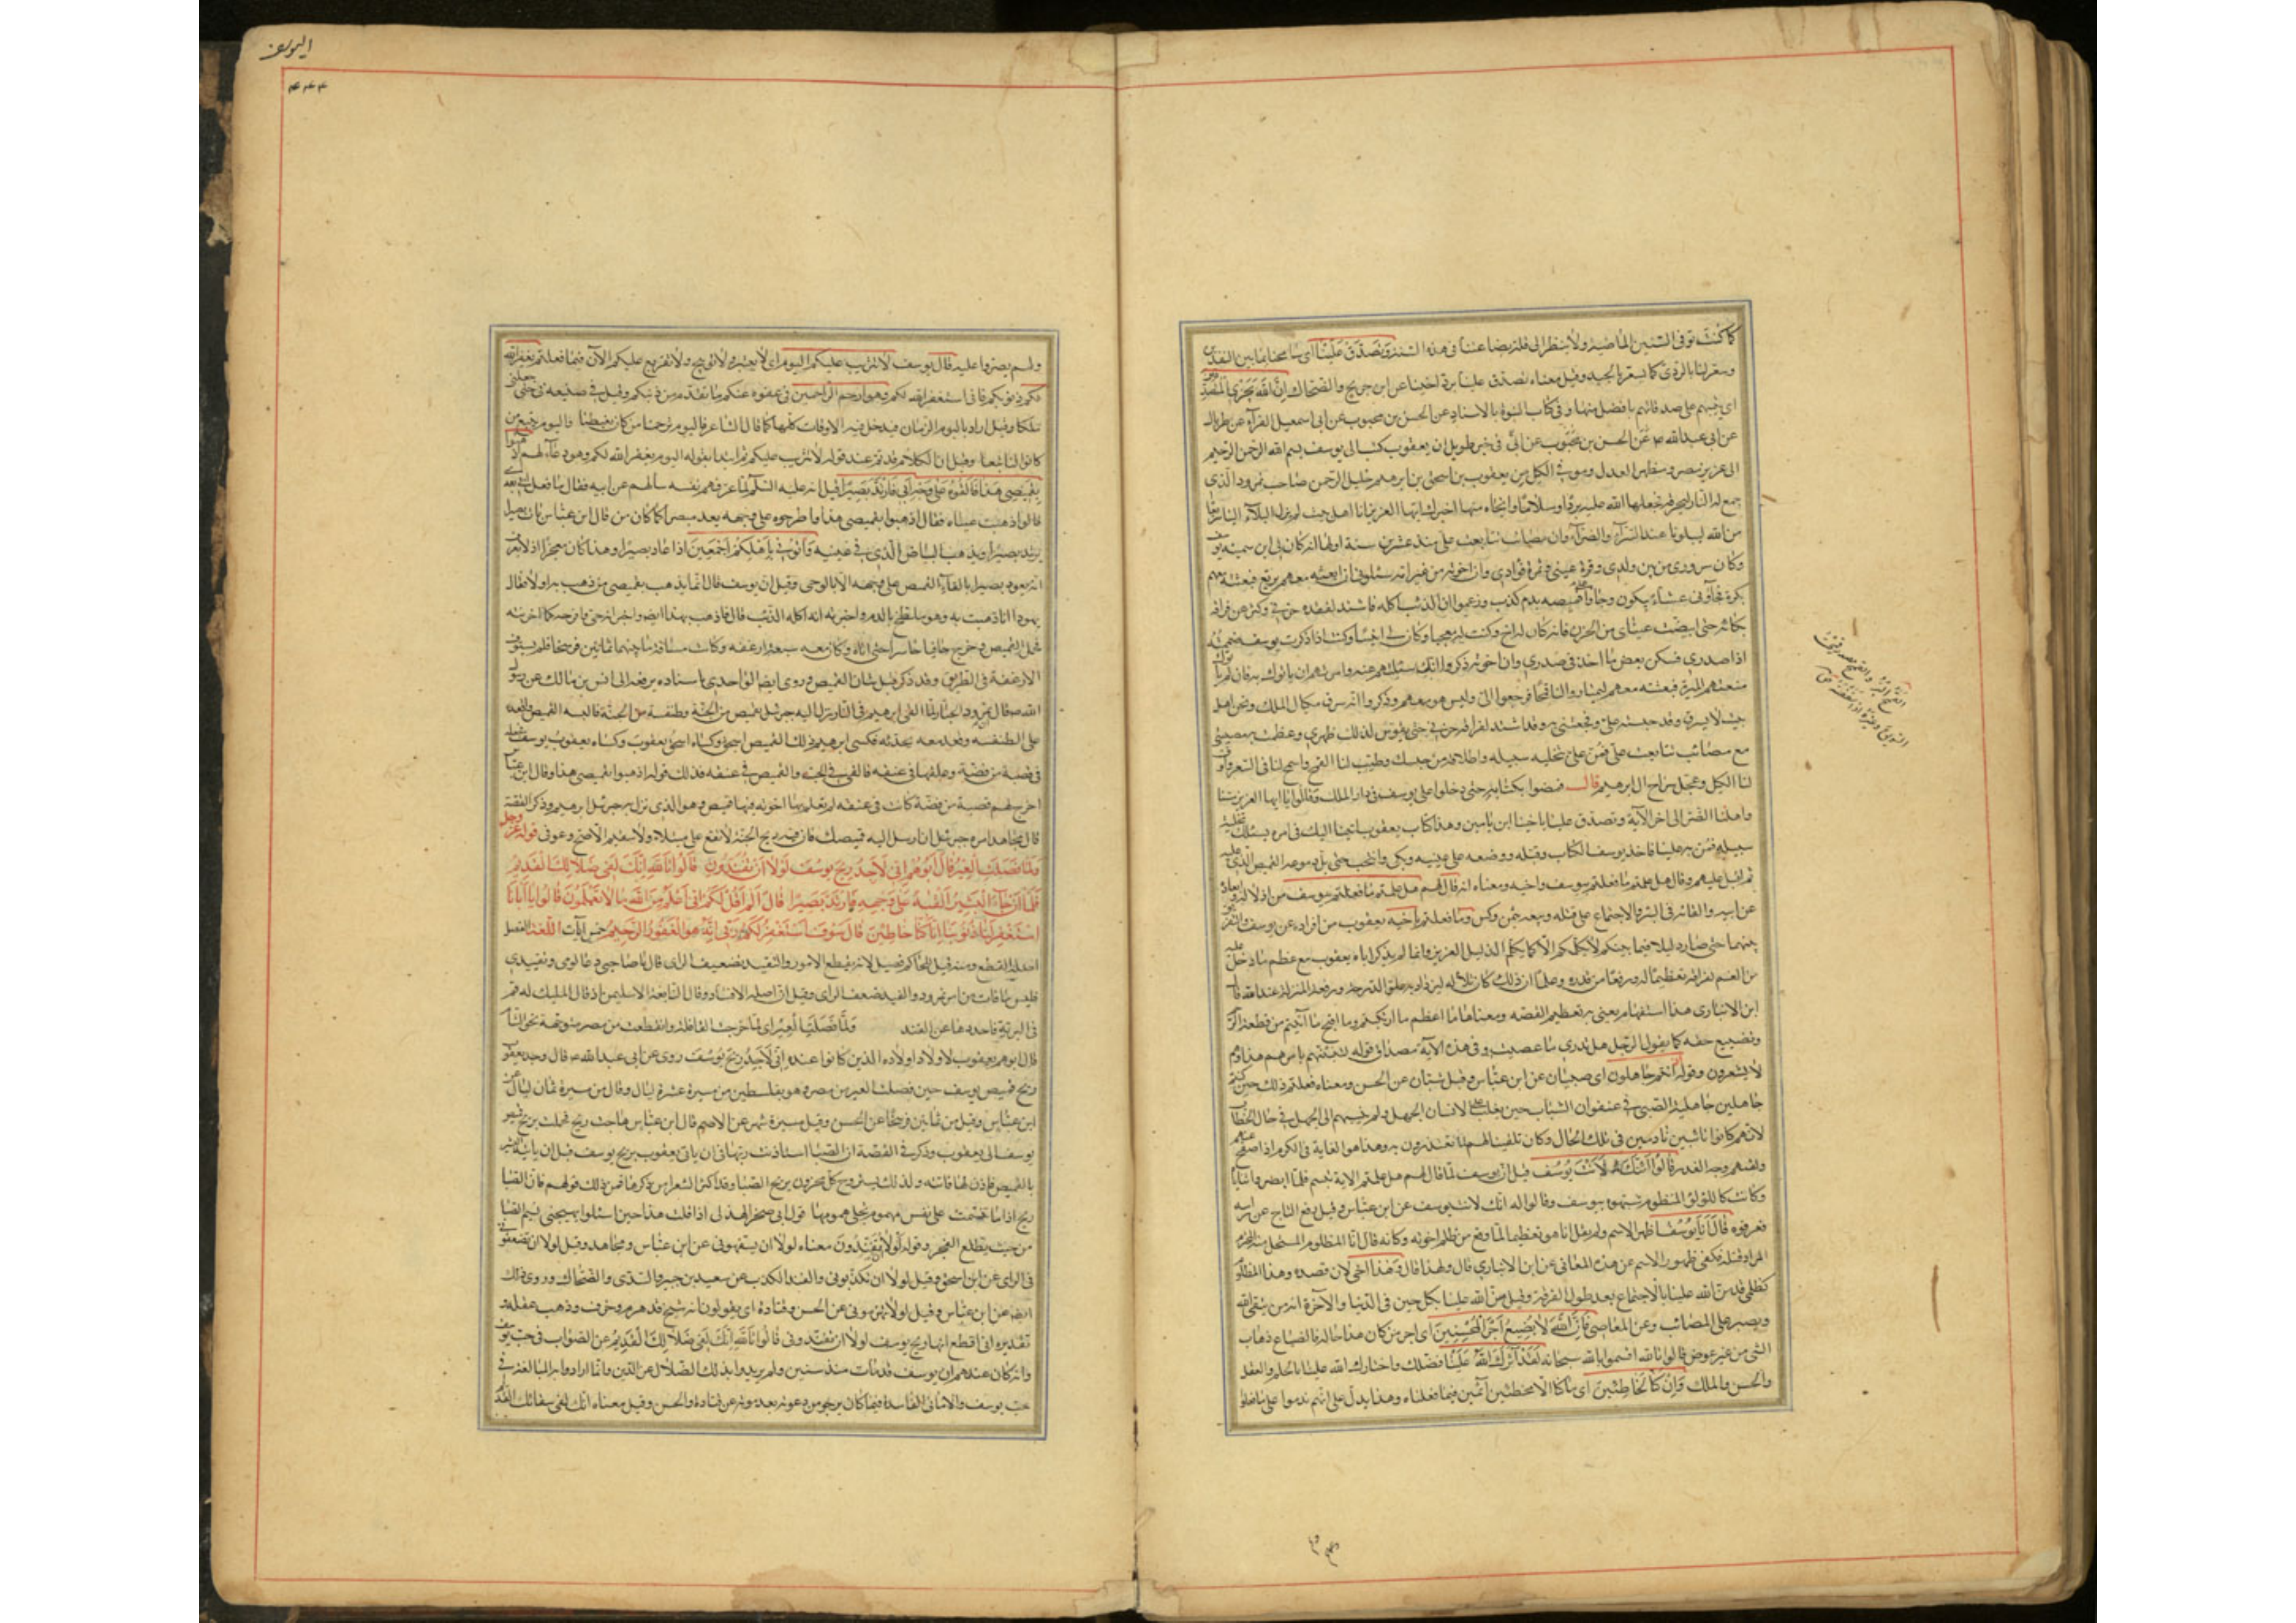 كما كنت توفي السنين الماضية ولا ينظر الى قلة بضاعتنا في هذه السنة وتصدق علينا اى سامحنا بما بين النقدين
وسعر لنا بالردى كما يسعر بالجيد وقيل معناه تصدق علينا برد اخينا عن ابن جريج والضحاك ان الله يجزى المتصدقين
اى يثيبهم على صدقاتهم بافضل منها وفي كتاب النبوة بالاسناد عن الحسن بن محبوب عن ابى اسمعيل الفرآء عن طربال
عن ابى عبد الله فى خبر طويل ان يعقوب كتب الى يوسف بسم الله الرحمن الرحيم
الى عزيز مصر ومظهر العدل وموفي الكيل من يعقوب بن اسحق بن ابرهيم خليل الرحمن صاحب نمرود الذى
جمع له النار ليحرقه فجعلها الله عليه بردا وسلاما وانجاه منها اخبرك ايها العزيز انا اهل بيت لم يزل البلآء الينا سريعا
من الله ليبلونا عند السرآء والضرآء وان مصائب تتابعت على منذ عشرين سنة اولها انه كان لى ابن سميته يوسف
وكان سرورى من بين ولدى وقرة عينى وثمرة فؤادى وان اخوته من غير امه سئلونى ان ابعثه معهم يرتع فبعثته معهم
بكرة فجآؤنى عشاء يبكون وجاؤا على قميصه بدم كذب وزعموا ان الذئب اكله فاشتد لفقده حزنى وكثر عن فراقه
بكائى حتى ابيضت عيناى من الحزن فانه كان له اخ وكنت به معجبا وكان لى انيسا وكنت اذا ذكرت يوسف ضممته
الى صدرى فسكن بعض ما اجد فى صدرى وان اخوته ذكروا انك سئلتهم عنه وامرتهم ان ياتوك به فان لم ياتوك
منعتهم الميرة فبعثته معهم ليمتاروا لنا قمحا فرجعوا الى وليس هو معهم وذكروا انه سرق مكيال الملك ونحن اهل
بيت لا نسرق وقد حبسته عنى وفجعتنى به وقد اشتد لفراقه حزنى حتى تقوس لذلك ظهرى وعظمت به مصيبتى
مع مصائب تتابعت على فمن على بتخلية سبيله واطلاقه من حبسك وطيب لنا القمح واسمح لنا فى السعر واوف
لنا الكيل وعجل سراح آل ابرهيم قال فمضوا بكتابه حتى دخلوا على يوسف فى دار الملك وقالوا يا ايها العزيز مسنا
واهلنا الضر الى اخر الآية وتصدق علينا باخينا ابن يامين وهذا كتاب يعقوب ابينا اليك فى امره يسئلك تخلية
سبيله فمن به علينا فاخذ يوسف الكتاب وقبله ووضعه على عينيه وبكى وانتحب حتى بل دموعه القميص الذى عليه
ثم اقبل عليهم وقال هل علمتم ما فعلتم بيوسف واخيه ومعناه انه قال لهم هل علمتم ما فعلتم بيوسف من اذلاله وابعاده
عن ابيه والقائه فى البئر والاجتماع على قتله وبيعه بثمن وكس وما فعلتم باخيه يعقوب من افراده عن يوسف والتفريق
بينهما حتى صار ذليلا فيما بينكم لا يكلمكم الا كما يكلم الذليل العزيز وانما لم يذكر اباه يعقوب مع عظم ما دخل عليه
من الغم لفراقه تعظيما له ورفعا من قدره وعلما ان ذلك كان بلآء له ليزداد به علو الدرجة ورفعة المنزلة عند الله قال
ابن الانبارى هذا استفهام يعنى به تعظيم القصة ومعناها ما اعظم ما ارتكبتم وما اقبح ما آتيتم من قطيعة الرحم
وتضييع حقه كما يقول الرجل هل تدرى ما عصيت وفى هذه الآية مصداق قوله لتنبئنهم بامرهم هذا وهم
لا يشعرون وقوله اذ انتم جاهلون اى صبيان عن ابن عباس وقيل شبان عن الحسن ومعناه فعلتم ذلك حين كنتم
جاهلين جاهلية الصبى فى عنفوان الشباب حين يغلب على الانسان الجهل ولم ينسبهم الى الجهل فى حال الخطاب
لانهم كانوا تائبين نادمين فى تلك الحال وكان تلقينا لهم لما يعتذرون به وهذا هو الغاية فى الكرم اذا صفح عنهم
ولقنهم وجه العذر قالوا ائنك لانت يوسف قيل ان يوسف لما قال لهم هل علمتم الاية تبسم فلما ابصروا ثناياه
وكانت كاللؤلؤ المنظوم شبهوه بيوسف وقالوا له ائنك لانت يوسف عن ابن عباس وقيل رفع التاج عن راسه
فعرفوه قال انا يوسف اظهر الاسم ولم يقل انا هو تعظيما لما وقع من ظلم اخوته وكانه قال انا المظلوم المستحل منه المحرم
المراد قتله فكفى ظهور الاسم عن هذه المعانى عن ابن الانبارى قال ولهذا قال وهذا اخى لان قصده وهذا المظلوم
كظلمى قد من الله علينا بالاجتماع بعد طول الفرقة وقيل من الله علينا بكل حين فى الدنيا والآخرة انه من يتق الله
ويصبر على المصائب وعن المعاصى فان الله لا يضيع اجر المحسنين اى اجر من كان هذا حاله فالضياع ذهاب
الشىء من غير عوض قالوا تالله اقسموا بالله سبحانه لقد آثرك الله علينا فضلك واختارك الله علينا بالحلم والعقل
والحسن والملك وان كنا لخاطئين اى ما كنا الا مخطئين آثمين فيما فعلناه وهذا يدل على انهم ندموا على ما فعلوا
اليوسف
۴۴۴
ولم يصروا عليه قال يوسف لا تثريب عليكم اليوم اى لا تعيير ولا توبيخ ولا تقريع عليكم الآن فيما فعلتم يغفر الله
لكم ذنوبكم فانى استغفر الله لكم وهو ارحم الراحمين فى عفوه عنكم ما تقدم من ذنبكم وقيل فى صنيعه بى حتى جعلنى
ملكا وقيل اراد باليوم الزمان فيدخل فيه الاوقات كلها كما قال الشاعر فاليوم يرحمنا من كان يغبطنا واليوم نتبع من
كانوا لنا تبعا وقيل ان الكلام قد تم عند قوله لا تثريب عليكم ثم ابتدا بقوله اليوم يغفر الله لكم وهو دعآء لهم اذهبوا
بقميصى هذا فالقوه على وجه ابى يات بصيرا قيل انه عليه السلم لما عرفهم نفسه سألهم عن ابيه فقال ما فعل ابى بعدى
قالوا ذهبت عيناه فقال اذهبوا بقميصى هذا واطرحوه على وجهه يعد مبصرا كما كان من قال ابن عباس يات بصيرا
يرتد بصيرا ويذهب البياض الذى فى عينيه واتونى باهلكم اجمعين اذا عاد بصيرا وهذا كان معجزا اذ لا يعرف
انه يعود بصيرا بالقآء القميص على وجهه الا بالوحى وقيل ان يوسف قال انما يذهب بقميصى من ذهب به اولا فقال
يهودا انا ذهبت به وهو ملطخ بالدم واخبرته انه اكله الذئب قال فاذهب بهذا ايضا واخبره انه حى وافرحه كما احزنته
فحمل القميص وخرج حافيا حاسرا حتى اتاه وكان معه سبعة ارغفة وكانت مسافة ما بينهما ثمانين فرسخا فلم يستوف
الارغفة فى الطريق وقد ذكر قبل شان القميص وروى ايضا الواحدى باسناده يرفعه الى انس بن مالك عن رسول
الله ص قال نمرود الجبار لما القى ابرهيم فى النار نزل اليه جبرئيل بقميص من الجنة وطنفسة من الجنة فالبسه القميص واقعده
على الطنفسة وقعد معه يحدثه فكسى ابرهيم ذلك القميص اسحق وكساه اسحق يعقوب وكساه يعقوب يوسف فجعله
فى قصبة من فضة وعلقها فى عنقه فالقى فى الجب والقميص فى عنقه فذلك قوله اذهبوا بقميصى هذا وقال ابن عباس
اخرج لهم قصبة من فضة كانت فى عنقه لم يعلم بها اخوته فيها قميص وهو الذى نزل به جبرئيل ابرهيم وذكر القصة
قال مجاهد امره جبرئيل ان ارسل اليه قميصك فان فيه ريح الجنة لا يقع على مبتلا ولا سقيم الا صح وعوفى قوله عز وجل
ولما فصلت العير قال ابوهم انى لاجد ريح يوسف لولا ان تفندون قالوا تالله انك لفى ضلالك القديم
فلما ان جاء البشير القيه على وجهه فارتد بصيرا قال الم اقل لكم انى اعلم من الله ما لا تعلمون قالوا يا ابانا
استغفر لنا ذنوبنا انا كنا خاطئين قال سوف استغفر لكم ربى انه هو الغفور الرحيم خمس آيات اللغة الفصل
اصله القطع ومنه قيل للحاكم فيصل لانه يقطع الامور والتفنيد تضعيف الراى قال يا صاحبى دعا لومى وتفنيدى
فليس ما فات من امر بمردود والفند ضعف الراى وقيل ان اصله الافساد وقال النابغة الا سليمن اذ قال المليك له قم
فى البرية فاحددها عن الفند ولما فصلت العير اى لما خرجت القافلة وانفصلت من مصر متوجهة نحو الشام
قال ابوهم يعقوب لاولاد اولاده الذين كانوا عنده انى لاجد ريح يوسف روى عن ابى عبد الله قال وجد يعقوب
ريح قميص يوسف حين فصلت العير من مصر وهو بفلسطين من مسيرة عشرة ليال وقال من مسيرة ثمان ليال عن
ابن عباس وقيل من ثمانين فرسخا عن الحسن وقيل مسيرة شهر عن الاصم قال ابن عباس هاجت ريح فحملت بريح قميص
يوسف الى يعقوب وذكر فى القصة ان الصبا استاذنت ربها فى ان ياتى يعقوب بريح يوسف قبل ان ياتيه البشير
بالقميص فاذن لها فاتته ولذلك يستروح كل محزون بريح الصبا وقد اكثر الشعرآء من ذكرها فمن ذلك قولهم فان الصبا
ريح اذا ما تنسمت على نفس مهموم تجلى همومها قول ابى صخر الهذلى اذا قلت هذا حين اسلوا يهيجنى نسيم الصبا
من حيث يطلع الفجر وقوله لولا ان تفندون معناه لولا ان يسفهونى عن ابن عباس ومجاهد وقيل لولا ان تضعفونى
فى الراى عن ابن اسحق وقيل لولا ان تكذبونى والفند الكذب عن سعيد بن جبير والسدى والضحاك وروى ذلك
ايضا عن ابن عباس وقيل لولا ان تهرمونى عن الحسن وقتادة اى يقولون انه شيخ قد هرم وخرف وذهب عقله و
تقديره انى اقطع انها ريح يوسف لولا ان تفندونى قالوا تالله انك لفى ضلالك القديم عن الصواب فى حب يوسف
وانه كان عندهم ان يوسف قد مات منذ سنين ولم يريدوا بذلك الضلال عن الدين وانما ارادوا به المبالغة فى
حب يوسف والامانى الفاسدة فيما كان يرجو من دعوته بعد موته عن قتادة والحسن وقيل معناه انك لفى سفائك القديم